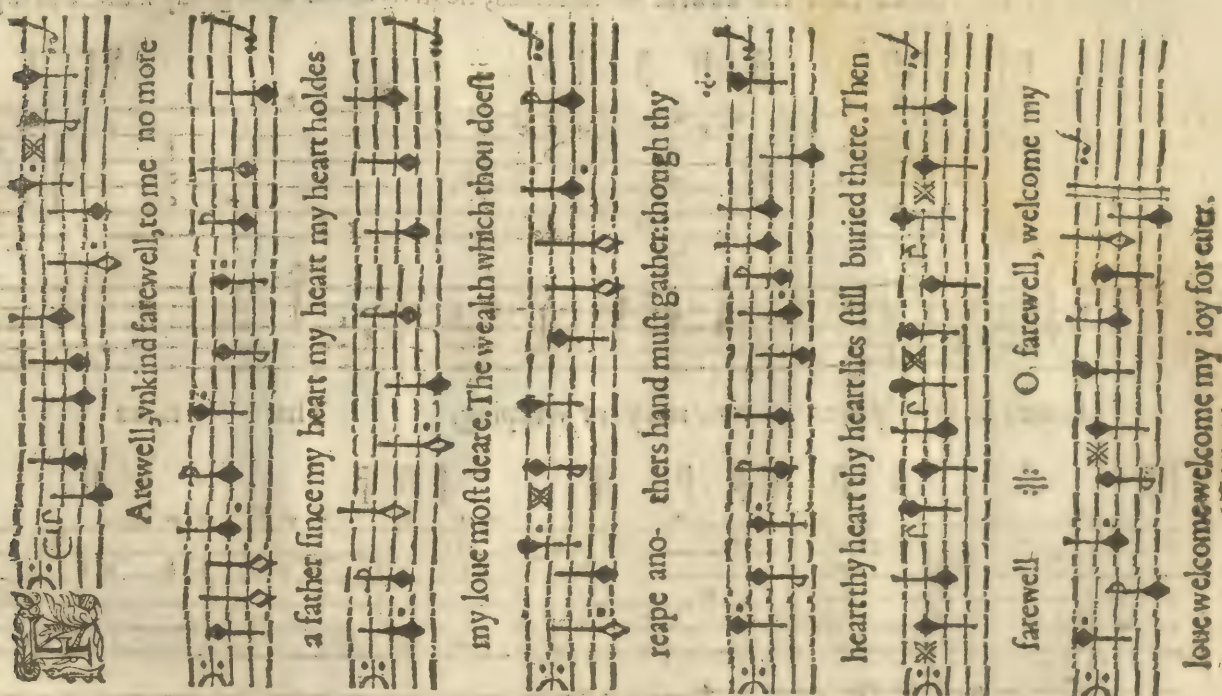 FArewell, vnkind farewell, to me no more
a father since my heart my heart my heart holdes
my loue most deare. The wealth which thou doest
reape ano- thers hand must gather: though thy
heart thy heart thy heart lies still buried there. Then
farewell :||: O farewell, welcome my
loue welcome welcome my ioy for euer.